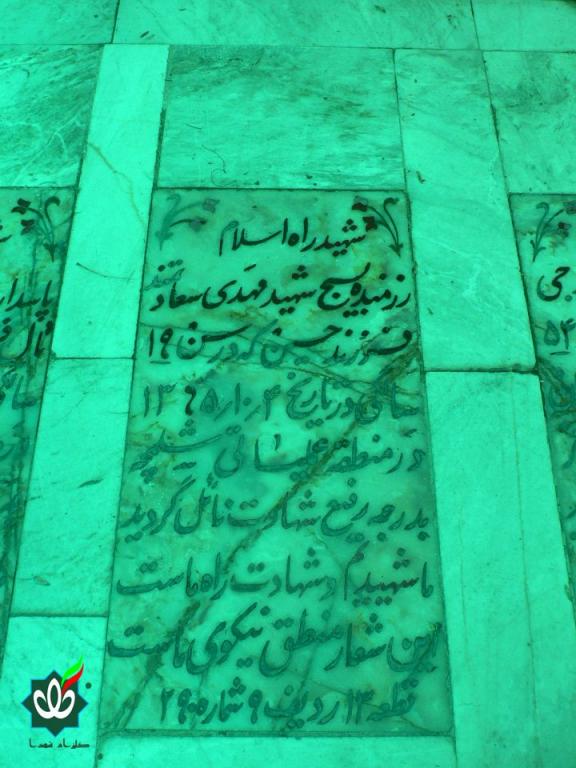 شهید راه اسلام
رزمنده بسیج شهید مهدی سعادتمند
فرزند حسین که در سن ۱۹
سالگی در تاریخ ۱۳۶۵/۱۰/۴
در منطقه عملیاتی شلمچه
بدرجه رفیع شهادت نائل گردید
ما شهیدیم و شهادت راه ماست
این شعار منطق نیکوی ماست
قطعه ۱۳ ردیف ۹ شماره ۲۹۰
پاسدار
جی
۵۴
گلزار شهدا